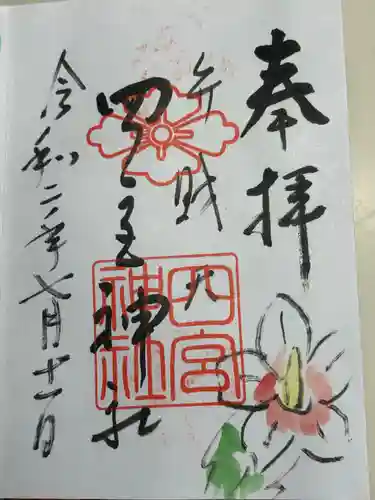 奉拝
弁財天
四之宮神社
四宮神社
令和二年七月十一日